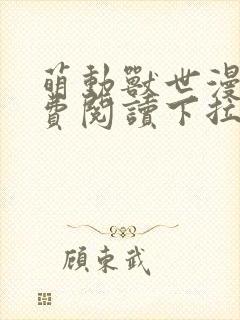 萌動獸世漫
費閱讀下拉
顧東武